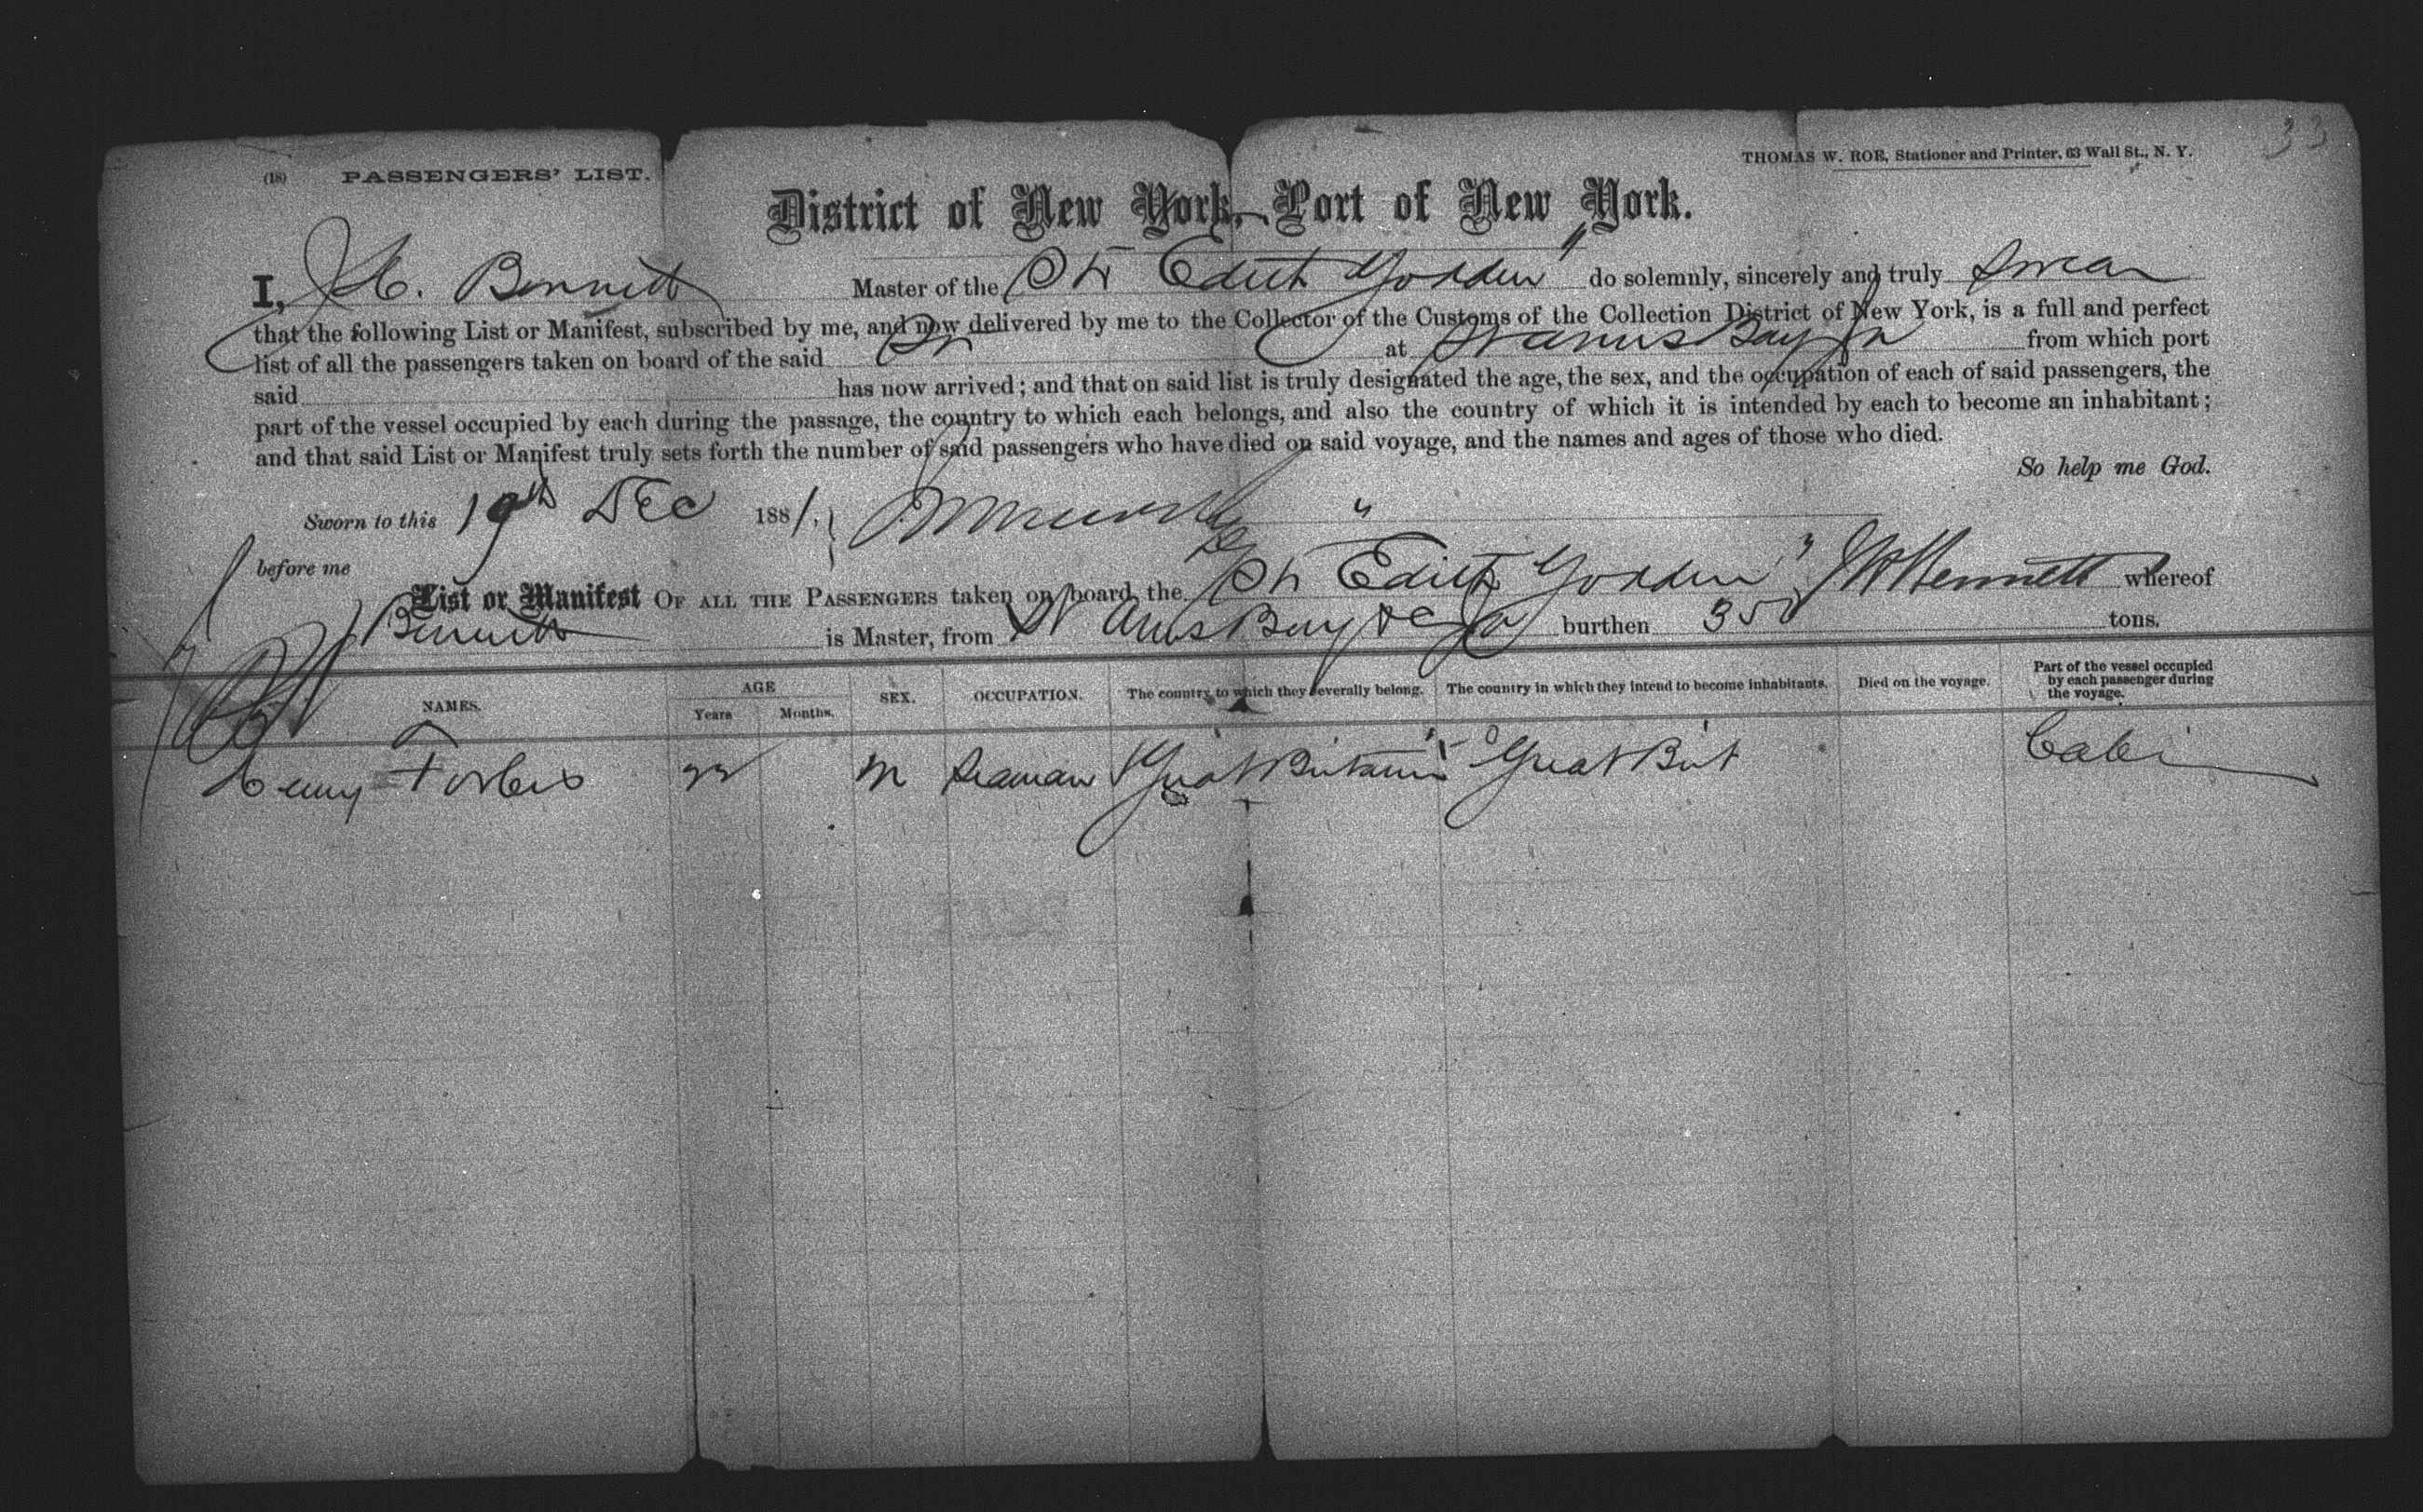 33
(18) PASSENGERS' LIST. THOMAS W. ROE, Stationer and Printer, 63 Wall St., N. Y.
District of New York, Port of New York.
I, Bennett Master of the Edith Godden" do solemnly, sincerely and truly swear
that the following List or Manifest, subscribed by me, and now delivered by me to the Collector of the Customs of the Collection District of New York, is a full and perfect
list of all the passengers taken on board of the said at St Anns Bay Ja from which port
said has now arrived; and that on said list is truly designated the age, the sex, and the occupation of each of said passengers, the
part of the vessel occupied by each during the passage, the country to which each belongs, and also the country of which it is intended by each to become an inhabitant;
and that said List or Manifest truly sets forth the number of said passengers who have died on said voyage, and the names and ages of those who died.
So help me God.
Sworn to this 19th Dec 1881,
before me
List or Manifest OF ALL THE PASSENGERS taken on board the Edith Godden" Bennett whereof
Bennett is Master, from St Anns Bay &c Ja burthen 350 tons.
NAMES. AGE Years Months. SEX. OCCUPATION. The country to which they severally belong. The country in which they intend to become inhabitants. Died on the voyage. Part of the vessel occupied by each passenger during the voyage.
Henry Forbes M Seaman Great Britain Great Brit Cabin